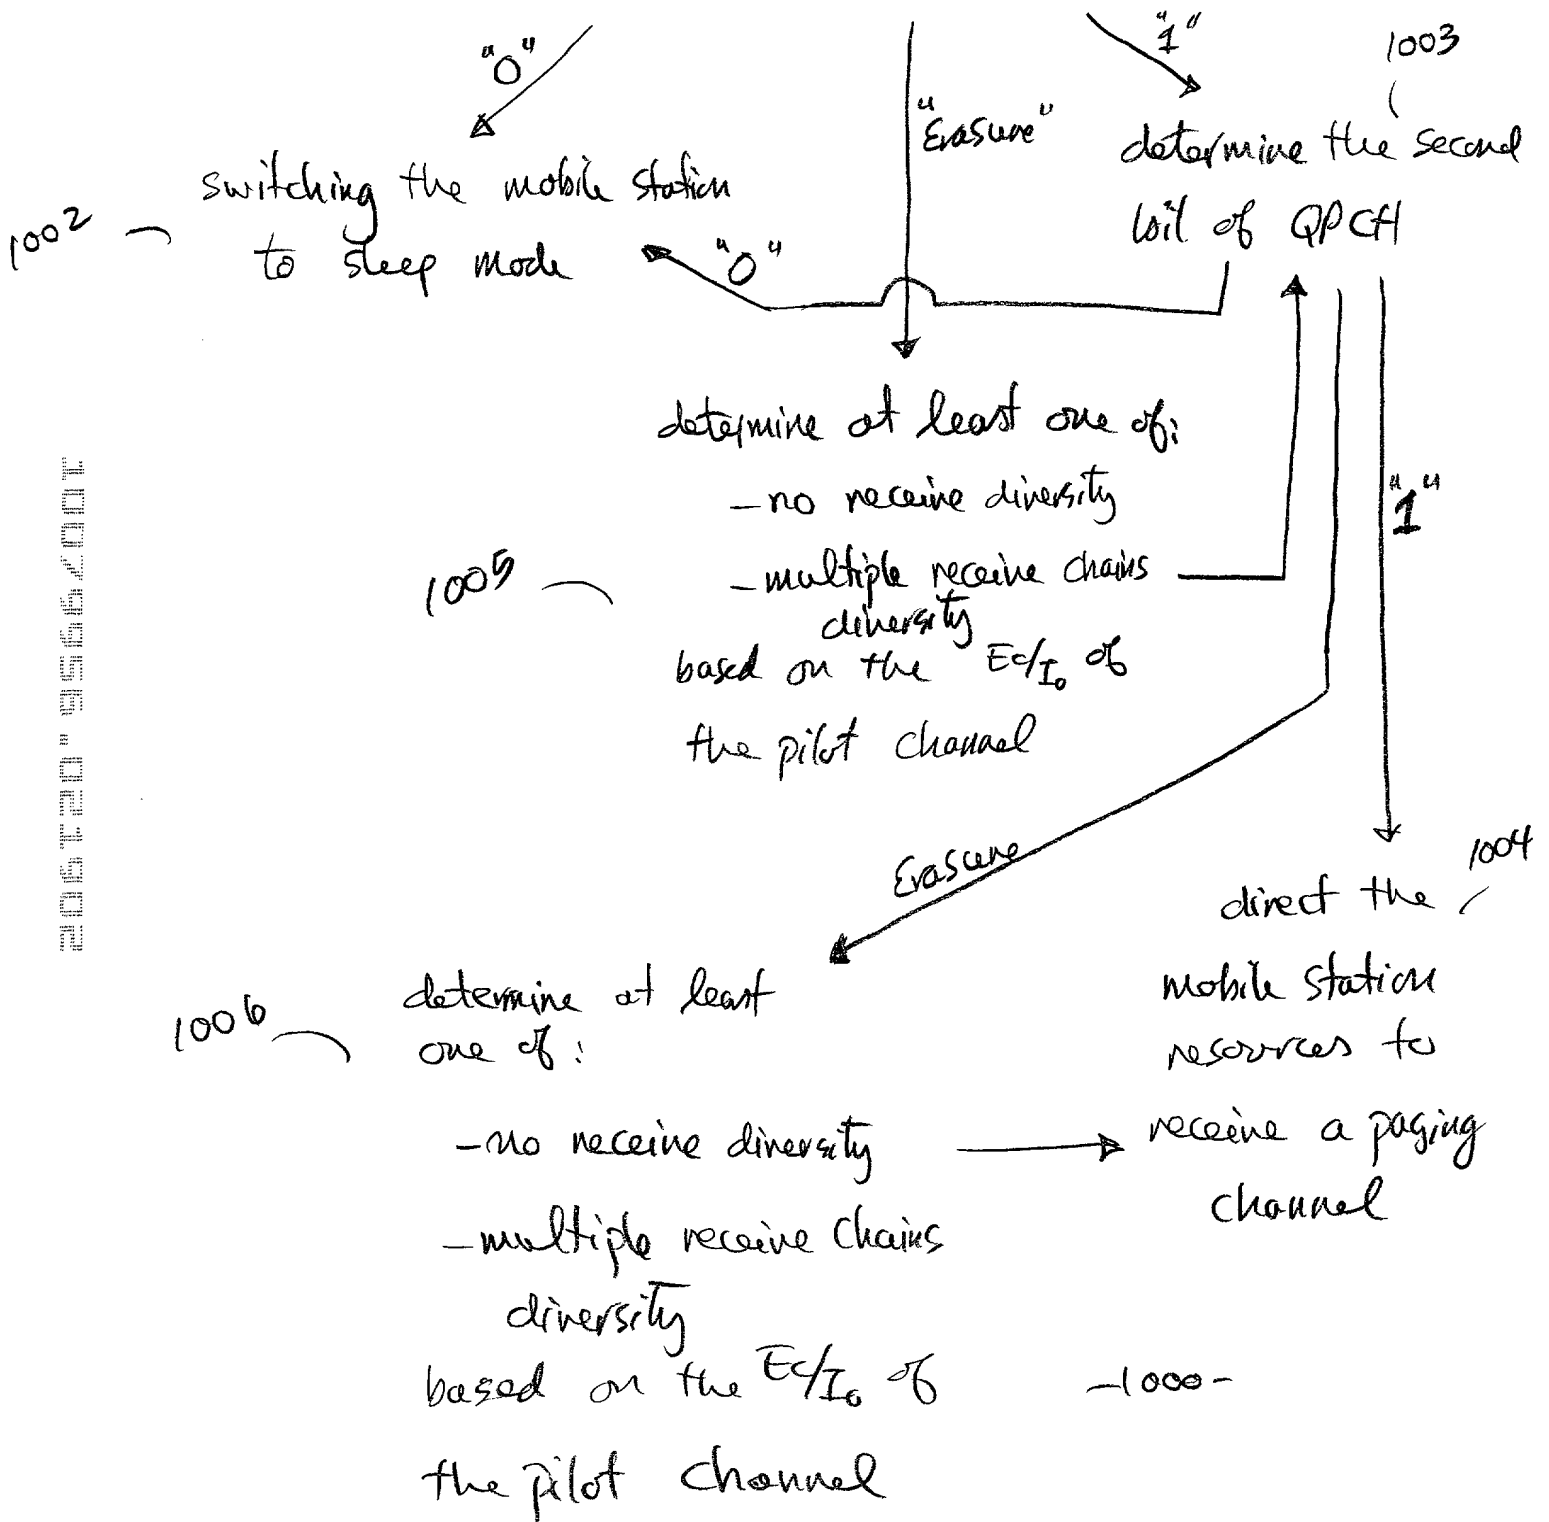 "0"
"1"
1003
"Erasure"
determine the second
switching the mobile station
1002
bit of QPCH
to sleep mode
"0"
determine at least one of:
- no receive diversity
"1"
1005
- multiple receive chains
diversity
based on the Ec/Io of
the pilot channel
10079956.021902
Erasure
1004
direct the
mobile station
resources to
receive a paging
channel
1006
determine at least
one of:
- no receive diversity
- multiple receive chains
diversity
based on the Ec/Io of
-1000-
the pilot channel